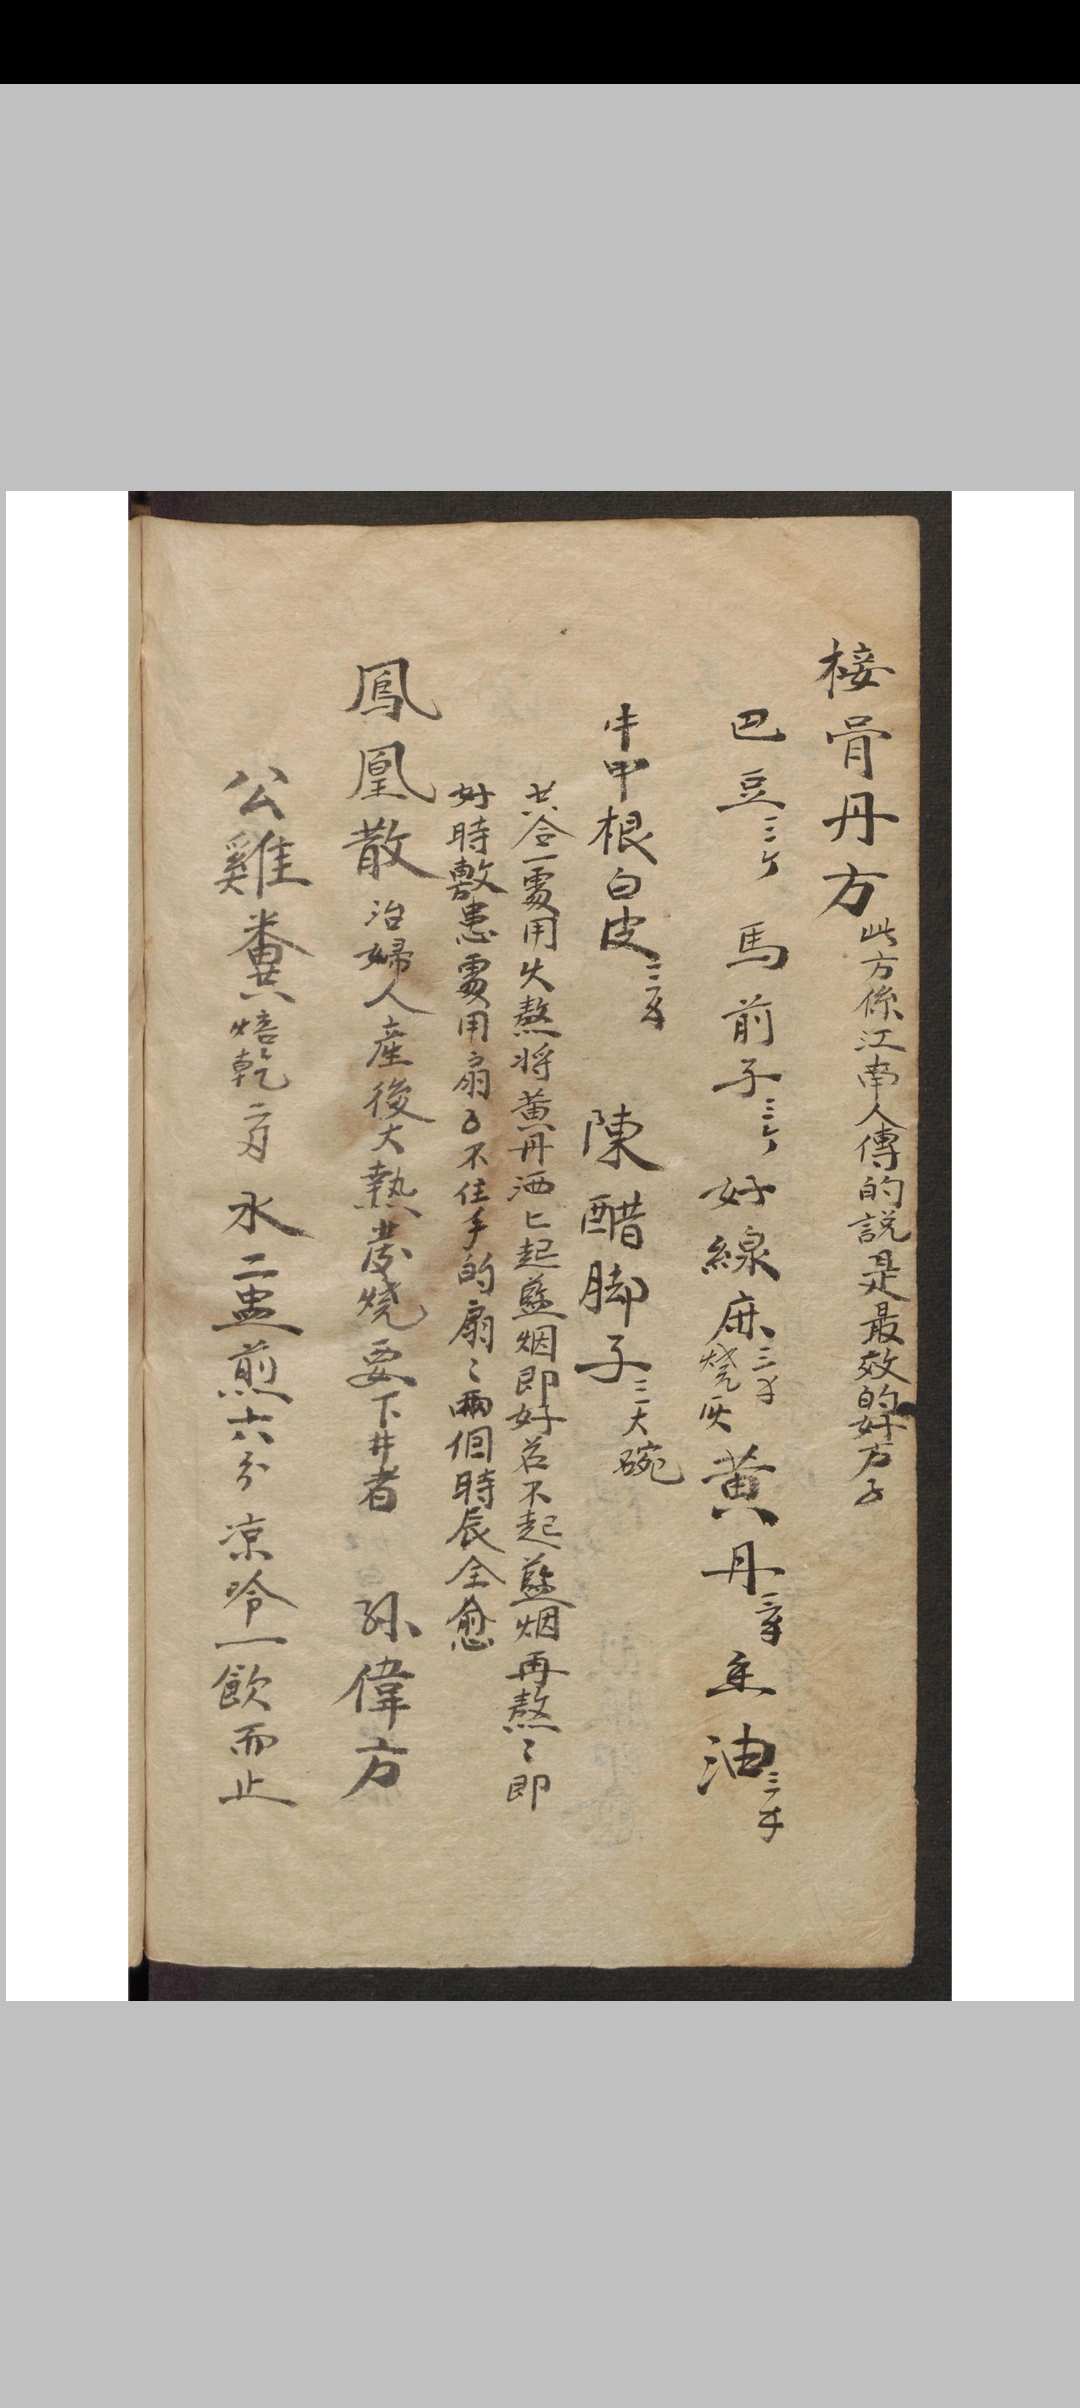 接骨丹方 此方係江南人傳的說是最效的好方子
巴豆三个 馬前子三个 好線麻三才燒灰 黃丹 香油三才
牛甲根白皮 陳醋脚子三大碗
共合一處用火熬將黃丹洒匕起藍烟即好若不起藍烟再熬〻即
好時敷患處用扇子不住手的扇〻兩個時辰全愈
鳳凰散 治婦人產後大熱發燒要下井者 孫偉方
公雞糞焙乾 水二盅煎六分凉冷一飲而止